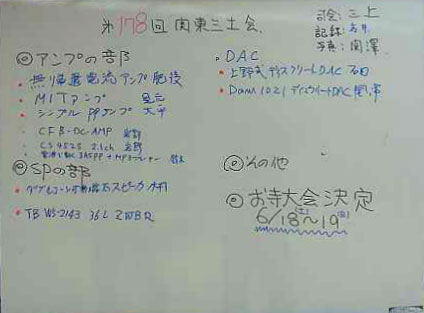 第178回 関東三土会.
司会: 三上
記録:
写真: 関澤
◎アンプの部
・無帰還電流アンプ 肥後
・MITアンプ
・シンプルPPアンプ 大平
・CFB-DC-AMP 岩野
・CS4525 2.1ch 岩野
◎SPの部
・スピーカ
・TB W5-2143 36L
・DAC
・上野式ディスクリートDAC 石田
・Dam1021 ディスクリートDAC
◎その他
◎お寺大会決定
6/18(土)〜19(日)